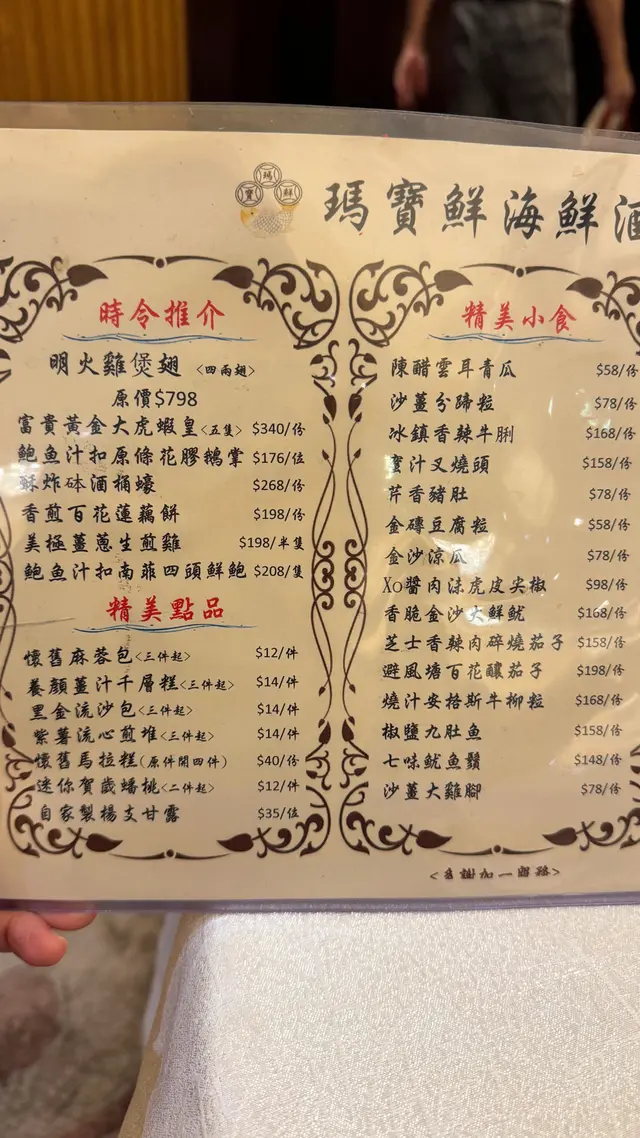 瑪
寶 鮮
瑪寶鮮海鮮酒
時令推介
明火雞煲翅 <四兩翅>
原價$798
富貴黃金大虎蝦皇<五隻> $340/份
鮑魚汁扣原條花膠鵝掌 $176/位
酥炸砵酒桶蠔 $268/份
香煎百花蓮藕餅 $198/份
美極薑蔥生煎雞 $198/半隻
鮑魚汁扣南菲四頭鮮鮑 $208/隻
精美點品
懷舊麻蓉包<三件起> $12/件
養顏薑汁千層糕<三件起> $14/件
黑金流沙包<三件起> $14/件
紫薯流心煎堆<三件起> $14/件
懷舊馬拉糕(原件開四件) $40/份
迷你賀歲蟠桃<二件起> $12/件
自家製楊支甘露 $35/位
精美小食
陳醋雲耳青瓜 $58/份
沙薑分蹄粒 $78/份
冰鎮香辣牛脷 $168/份
蜜汁叉燒頭 $158/份
芹香豬肚 $78/份
金磚豆腐粒 $58/份
金沙涼瓜 $78/份
Xo醬肉沫虎皮尖椒 $98/份
香脆金沙大鮮魷 $168/份
芝士香辣肉碎燒茄子 $158/份
避風塘百花釀茄子 $198/份
燒汁安格斯牛柳粒 $168/份
椒鹽九肚魚 $158/份
七味魷魚鬚 $148/份
沙薑大雞腳 $78/份
<多謝加一服務>